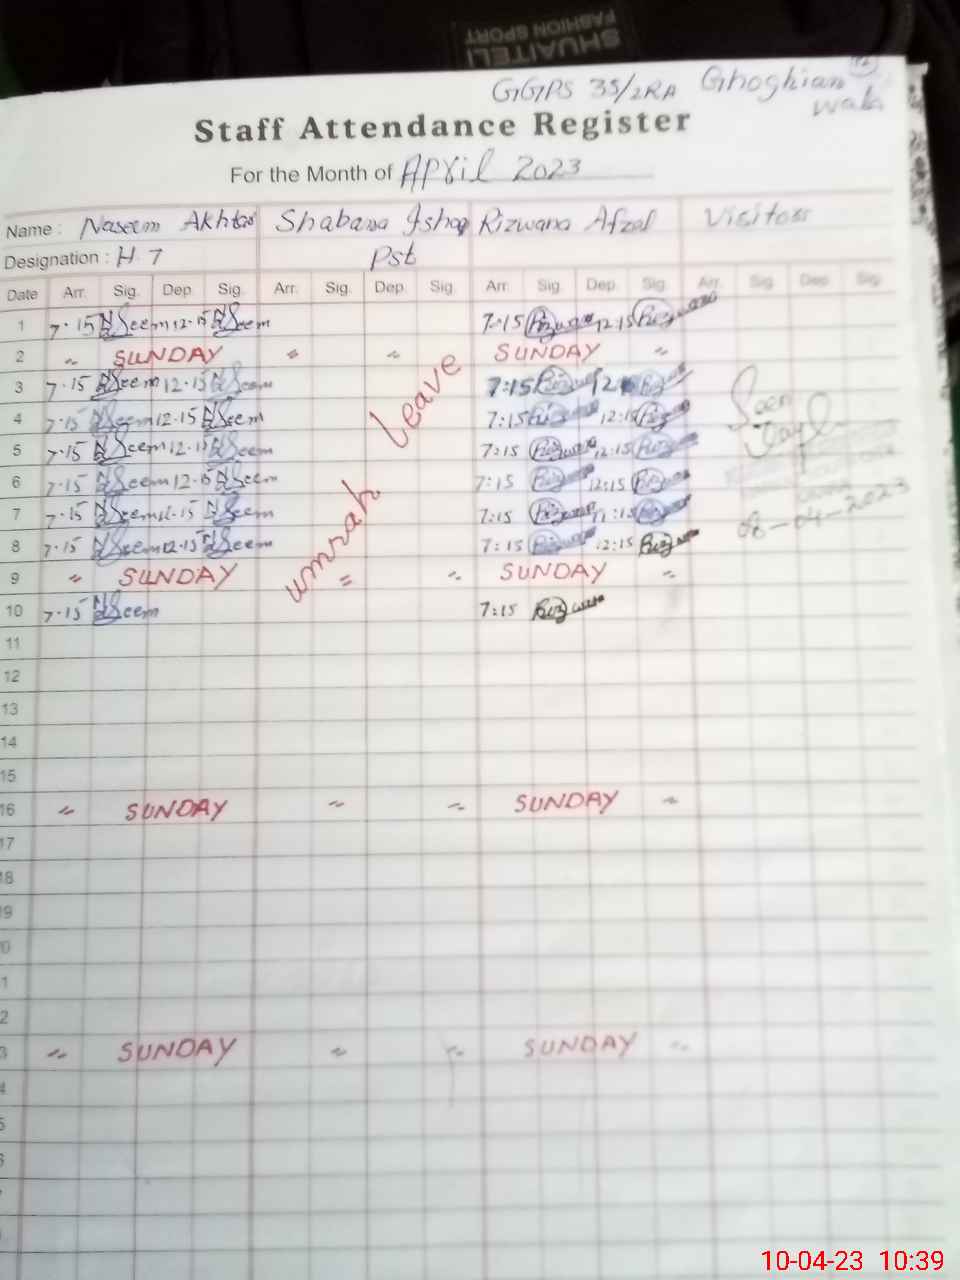 SHUAITELI
FASHION SPORT
GGPS 35/2RA Ghoghian
wala
Staff Attendance Register
For the Month of April 2023
Name : Naseem Akhtar Shabana Ishaq Rizwana Afzal Visitors
Designation : H.T Pst
Date Arr. Sig. Dep. Sig. Arr. Sig. Dep. Sig. Arr. Sig. Dep. Sig. Arr. Sig. Dep. Sig.
1 7.15 NSeem 12.15 NSeem 7:15 Rizwana 12:15 Rizwana
2 〃 SUNDAY 〃 〃 SUNDAY 〃
3 7.15 NSeem 12.15 NSeem 7:15 Rizwana 12
4 7.15 NSeem 12.15 NSeem 7:15 Rizwana 12:15 Rizwana
5 7.15 NSeem 12.15 NSeem 7:15 Rizwana 12:15 Rizwana
6 7.15 NSeem 12.15 NSeem 7:15 Rizwana 12:15 Rizwana
7 7.15 NSeem 12.15 NSeem 7:15 Rizwana :15 Rizwana
8 7.15 NSeem 12.15 NSeem 7:15 Rizwana 12:15 Rizwana
umrah Leave
Seen
08-04-2023
9 〃 SUNDAY 〃 〃 SUNDAY 〃
10 7.15 NSeem 7:15 Rizwana
11
12
13
14
15
16 〃 SUNDAY 〃 〃 SUNDAY 〃
17
18
9
0
1
2
3 〃 SUNDAY 〃 〃 SUNDAY 〃
4
5
10-04-23 10:39